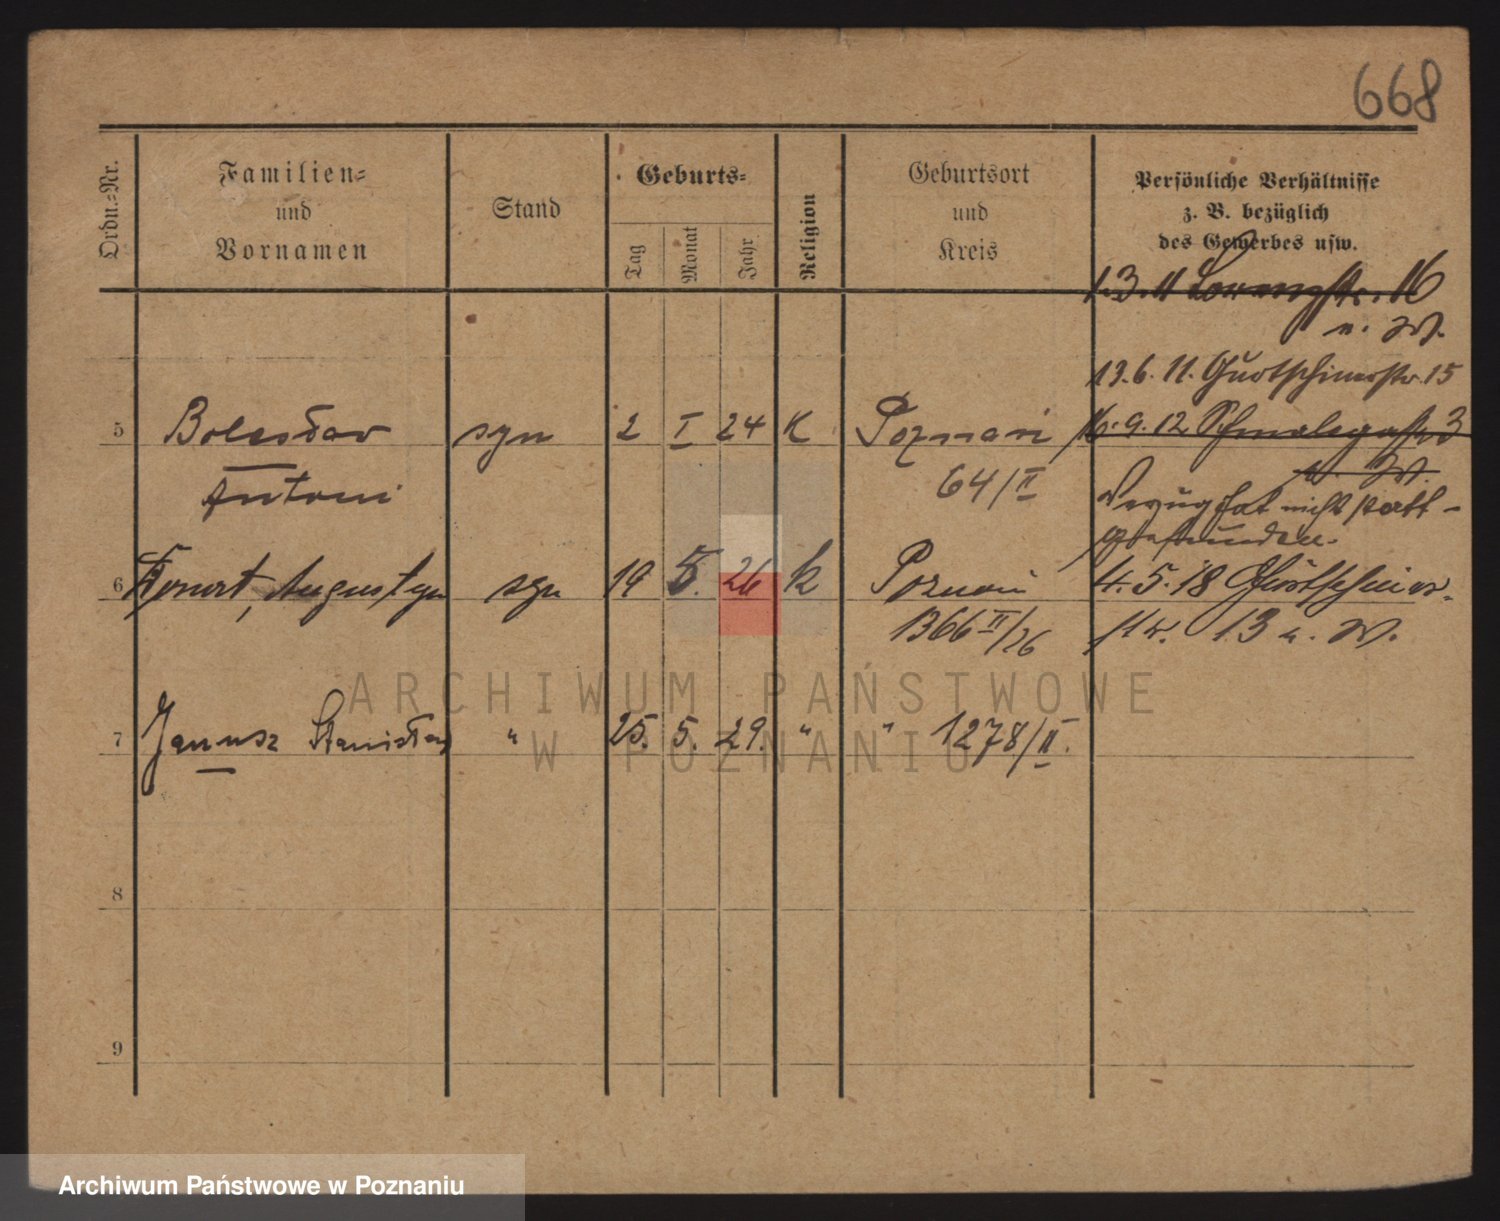 668
Ordn.-Nr.
Familien-
und
Vornamen
Stand
Geburts-
Tag
Monat
Jahr
Religion
Geburtsort
und
Kreis
Persönliche Verhältnisse
z. B. bezüglich
des Gewerbes usw.
1.3.11 16
n. W.
13.6.11. 15
5 Bolesław syn 2 I 24 K Poznań
16.9.12 Schmalegasse 3
n. W.
Antoni 64/II
Verzug hat nicht statt-
gefunden.
6 Konrat, Augustyn syn 19 5. 26 k Poznań
1366 II/26
4.5.18 Gurtschiner-
str. 13 n. W.
7 Janusz Stanisław " 25. 5. 29. " " 1278/II.
8
9
ARCHIWUM PAŃSTWOWE
W POZNANIU
Archiwum Państwowe w Poznaniu